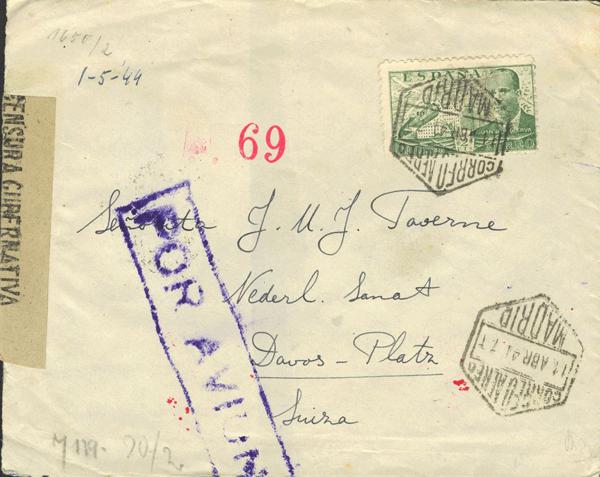 1650/2
1-5-44
ESPAÑA
CORREO AEREO
MADRID
CENSURA GUBERNATIVA
69
Señorita J. M. J. Taverne
Nederl. Sanat
Davos-Platz
Suiza
POR AVION
MADRID
11 ABR 41. 7 T
CORREO AEREO